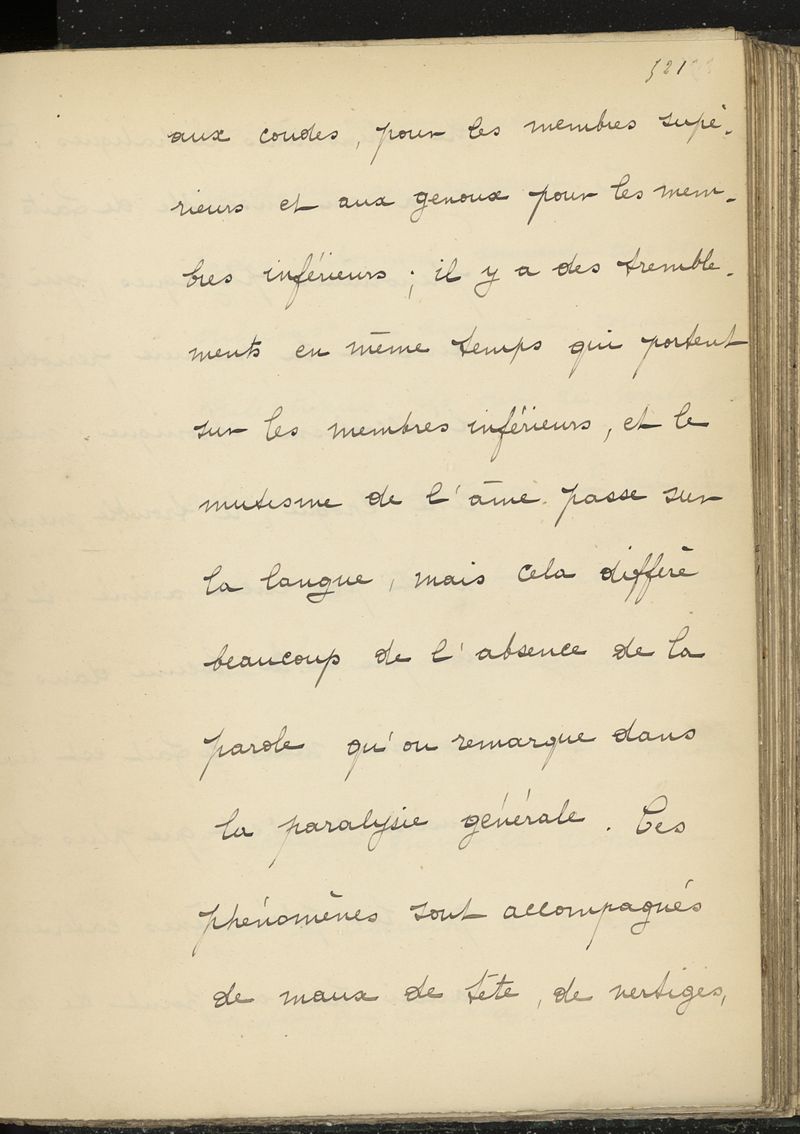 521
aux coudes, pour les membres supé-
rieurs et aux genoux pour les mem-
bres inférieurs ; il y a des tremble-
ments en même temps qui portent
sur les membres inférieurs, et le
mutisme de l'âme passe sur
la langue, mais cela differe
beaucoup de l'absence de la
parole qu'on remarque dans
la paralysie générale. Ces
phénomènes sont accompagnés
de maux de tête, de vertiges,